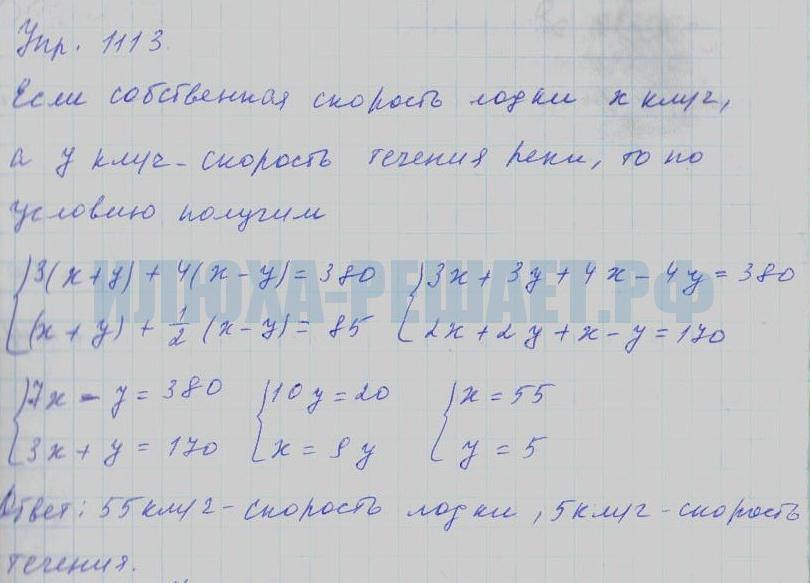 Упр. 1113.
Если собственная скорость лодки x км/ч,
а y км/ч - скорость течения реки, то по
условию получим
{3(x+y) + 4(x-y) = 380 {3x + 3y + 4x - 4y = 380
(x+y) + 1/2 (x-y) = 85 2x + 2y + x - y = 170
ИЛЮХА-РЕШАЕТ.РФ
{7x - y = 380 {10y = 20 {x = 55
3x + y = 170 x = 9y y = 5
Ответ: 55 км/ч - скорость лодки, 5 км/ч - скорость
течения.